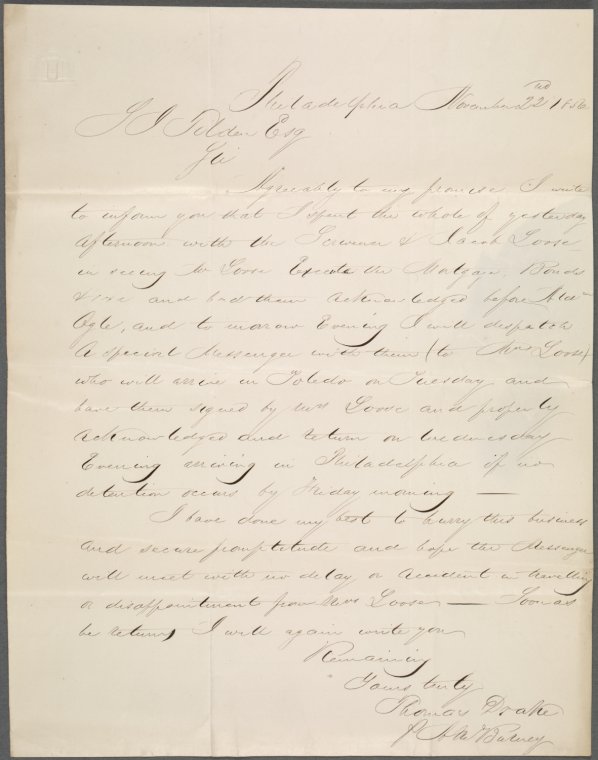 Philadelphia November 22nd 1856
S J Tilden Esq
Sir
Agreeably to my promise I write
to inform you that I spent the whole of yesterday
afternoon with the Scrivener & Jacob Loose
in seeing Mr Loose Execute the Mortgage, Bonds
&c &c and had them acknowledged before Alder
Ogle, and to morrow Evening I will despatch
a special Messenger with them (to Mrs Loose)
who will arrive in Toledo on Tuesday and
have them signed by Mrs Loose and properly
acknowledged and return on Wednesday
Evening arriving in Philadelphia if no
detention occurs by Friday morning —
I have done my best to hurry this business
and secure promptitude and hope the Messenger
will meet with no delay or accident in travelling
or disappointment from Mrs Loose — Soon as
he returns I will again write you
Remaining
Yours truly
Thomas Drake
Burney